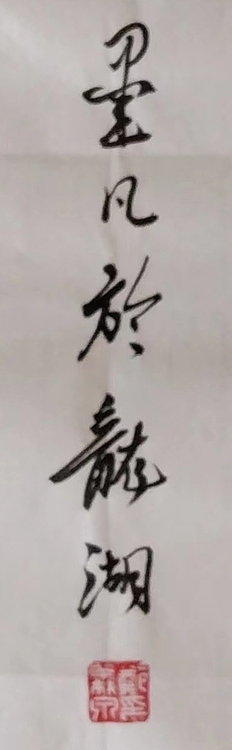 墨凡於龍湖